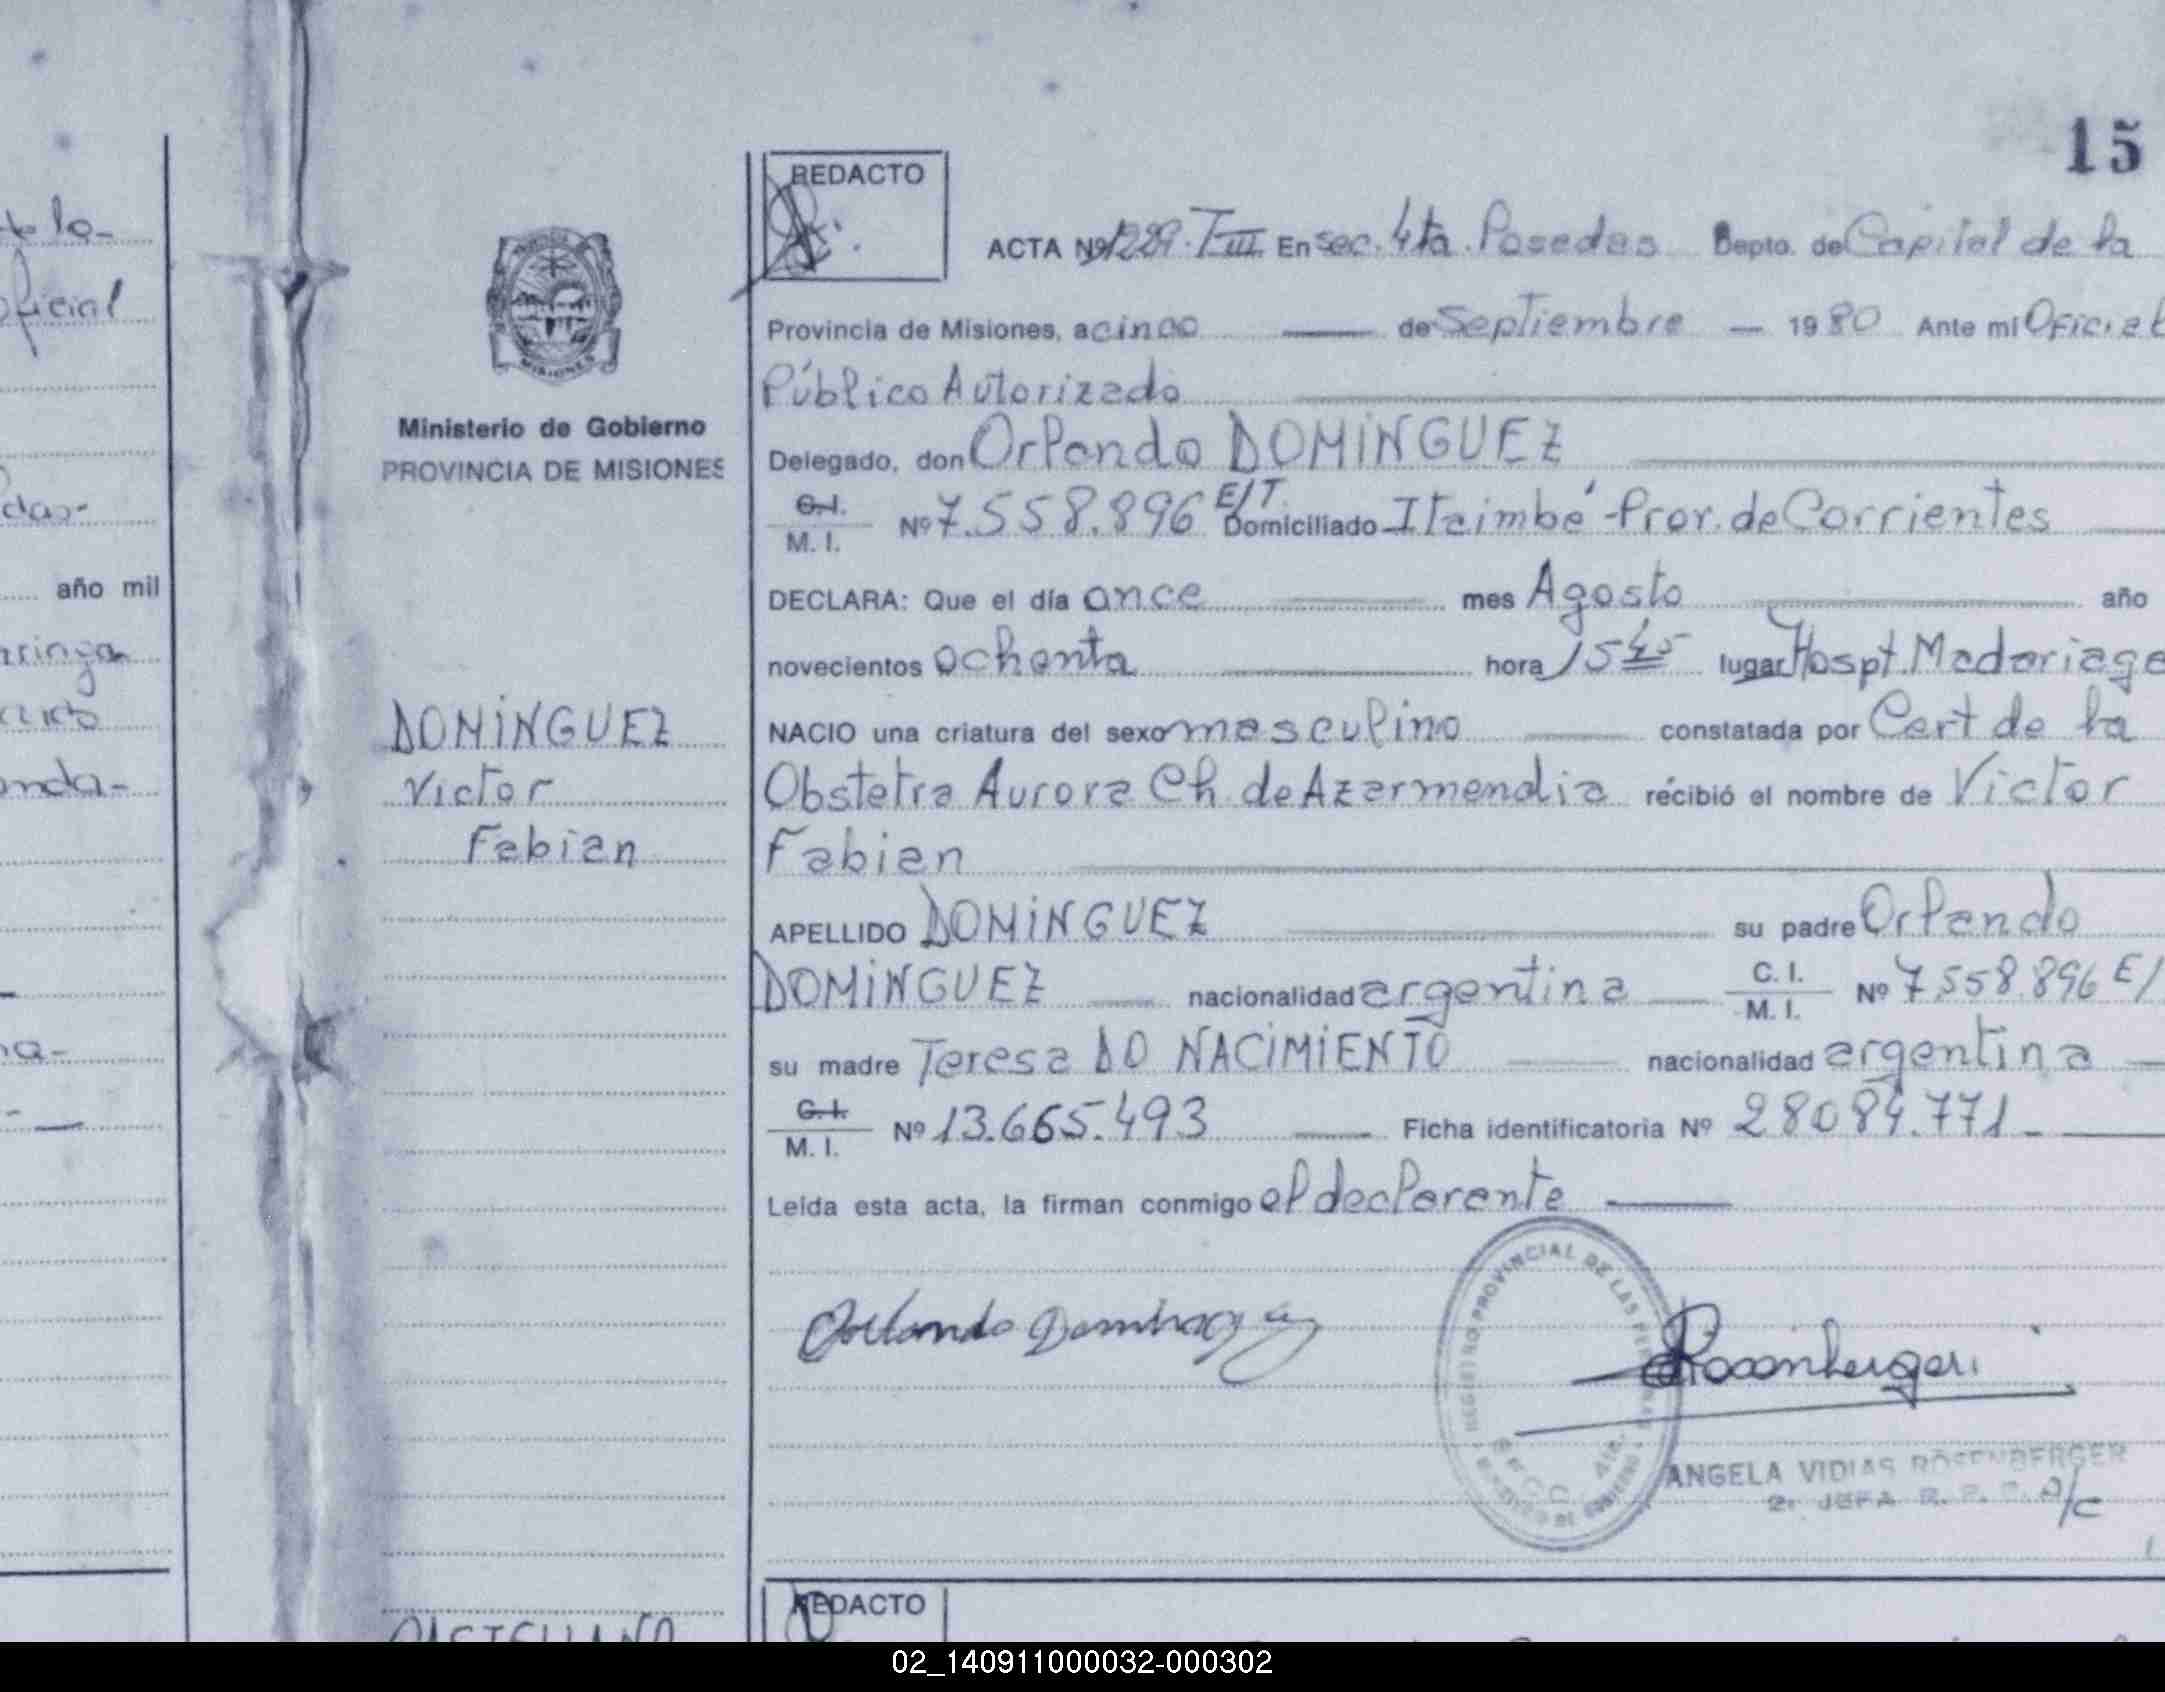 15
REDACTO
ACTA Nº 1229. T-III En sec. 4ta. Posadas Depto. de Capital de la
Provincia de Misiones, a cinco — de Septiembre — 1980 Ante mí Oficial
Público Autorizado
Delegado, don Orlando DOMINGUEZ
C.I.
M.I. Nº 7.558.896 E/T. Domiciliado Itaimbé - Prov. de Corrientes
DECLARA: Que el día once mes Agosto año
novecientos ochenta hora 15 45 lugar Hospt. Madariaga
NACIO una criatura del sexo masculino constatada por Cert de la
Obstetra Aurora Ch. de Azarmendia recibió el nombre de Victor
Fabian
APELLIDO DOMINGUEZ su padre Orlando
DOMINGUEZ nacionalidad argentina C.I.
M.I. Nº 7.558.896 E/
su madre Teresa DO NACIMIENTO nacionalidad argentina
C.I.
M.I. Nº 13.665.493 Ficha identificatoria Nº 28084.771
Leída esta acta, la firman conmigo el declarente
Orlando Dominguez
REGISTRO PROVINCIAL DE LAS PERSONAS
ANGELA VIDIAS ROSENBERGER
2. JEFA R. P. P. A/C
MISIONES
Ministerio de Gobierno
PROVINCIA DE MISIONES
DOMINGUEZ
Victor
Fabian
oficial
año mil
REDACTO
02_140911000032-000302